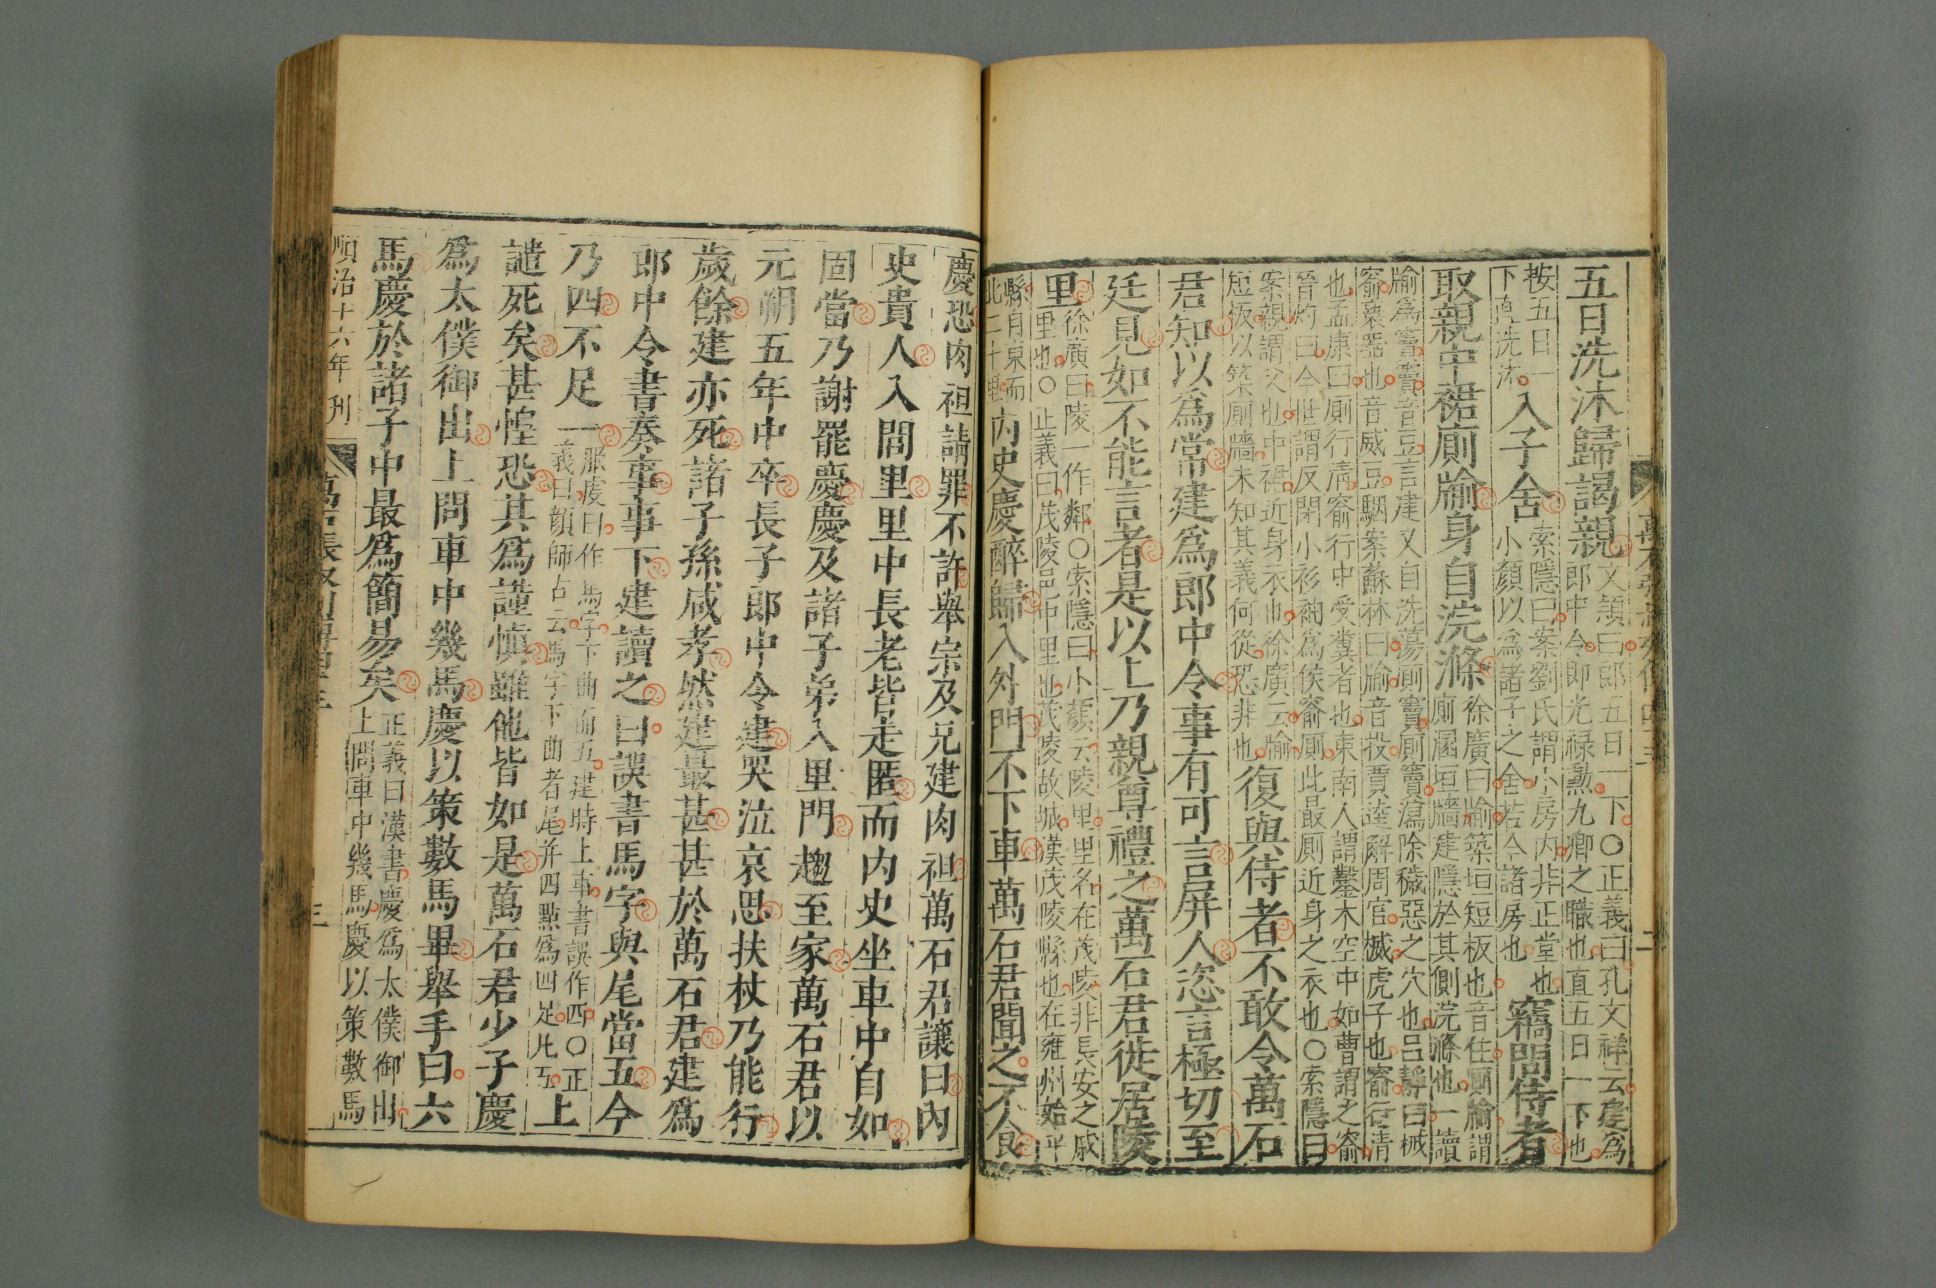 五日洗沐歸謁親文頴曰郎五日一下○正義曰孔文祥云慶為
郎中令即光禄勲九卿之職也直五日一下也
按五日一
下直洗沐入子舍索隱曰案劉氏謂小房内非正堂也
小顏以為諸子之舍若今諸房也竊問侍者
取親中裙廁牏身自浣滌徐廣曰牏築垣短板也音住廁牏謂
廁溷垣牆建隱於其側浣滌也一讀
牏為竇竇音豆言建又自洗蕩廁竇廁竇瀉除穢惡之穴也呂靜曰楲
窬褻器也音威豆駰案蘇林曰牏音投賈逵解周官楲虎子也窬行清
也孟康曰廁行清窬行中受糞者也東南人謂鑿木空中如曹謂之窬
晉灼曰今世謂反閉小衫袖為侯窬廁此最廁近身之衣也○索隱曰
案親謂父也中裙近身衣也徐廣云牏
短板以築廁牆未知其義何從恐非也復與侍者不敢令萬石
君知以為常建為郎中令事有可言屏人恣言極切至
廷見如不能言者是以上乃親尊禮之萬石君徙居陵
里徐廣曰陵一作鄰○索隱曰小顏云陵里里名在茂陵非長安之戚
里也○正義曰茂陵邑中里也茂陵故城漢茂陵縣也在雍州始平
縣東
北二十内史慶醉歸入外門不下車萬石君聞之不食
慶恐肉袒請罪不許舉宗及兄建肉袒萬石君讓曰内
史貴人入閭里里中長老皆走匿而内史坐車中自如
固當乃謝罷慶慶及諸子弟入里門趨至家萬石君以
元朔五年中卒長子郎中令建哭泣哀思扶杖乃能行
歲餘建亦死諸子孫咸孝然建最甚甚於萬石君建為
郎中令書奏事事下建讀之曰誤書馬字與尾當五今
乃四不足一服虔曰作馬字下曲而五建時上事書誤作四○正
義曰顏師古云馬字下曲者尾并四點為四足凡五上
譴死矣甚惶恐其為謹慎雖他皆如是萬石君少子慶
為太僕御出上問車中幾馬慶以策數馬畢舉手曰六
馬慶於諸子中最為簡易矣正義曰漢書慶為太僕御出
上問車中幾馬慶以策數馬
順治十六年刊
三